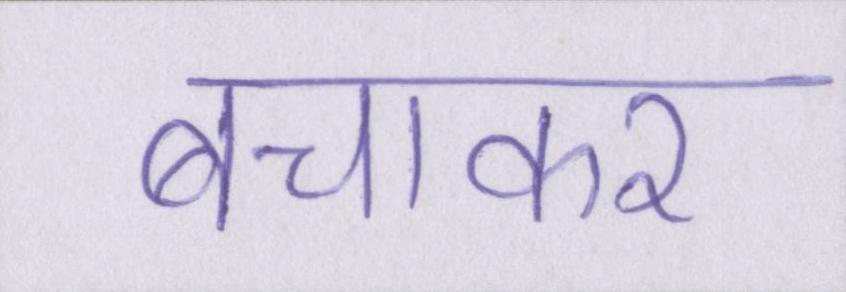 बचाकर